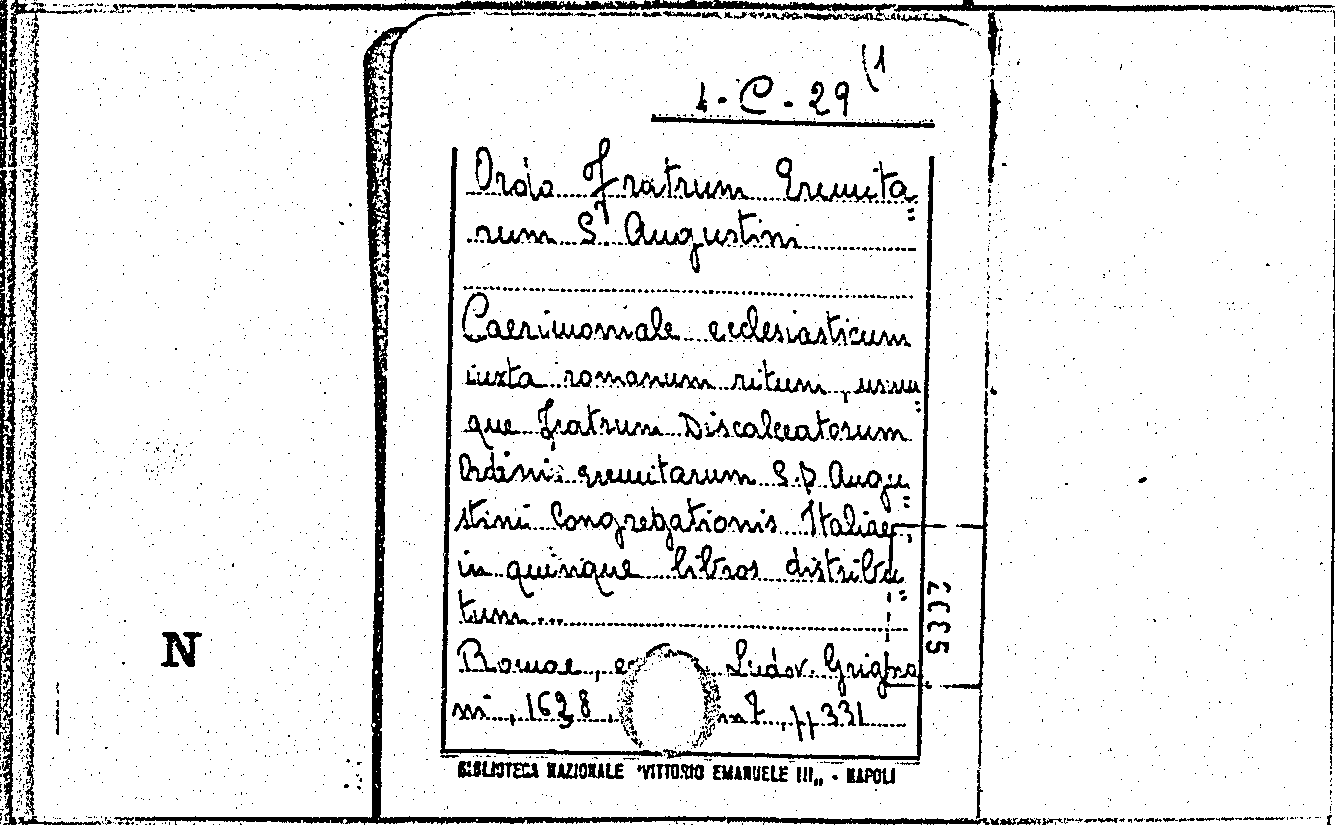 1-C-29(1
Ordo Fratrum Eremita=
rum S. Augustini
Caerimoniale ecclesiasticum
iuxta romanum ritum, usum=
que Fratrum Discalceatorum
Ordinis eremitarum S. P. Augu=
stini Congregationis Italiae,
in quinque libros distribu=
tum...
Romae, Ludov. Grigna
ni, 1638, pp 331
BIBLIOTECA NAZIONALE "VITTORIO EMANUELE III„ - NAPOLI
N